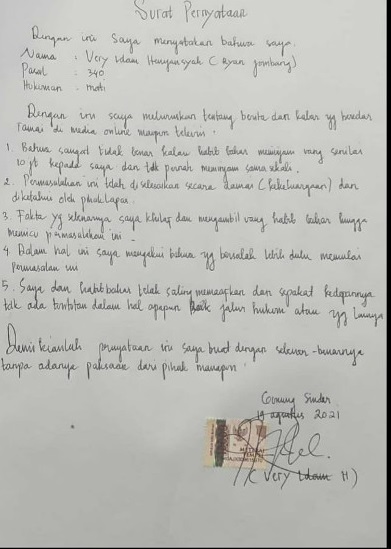 Surat Pernyataan
Dengan ini saya menyatakan bahwa saya.
Nama : Very Idam Henyansyah (Ryan Jombang)
Pasal : 340
Hukuman : mati
Dengan ini saya meluruskan tentang berita dan kabar yg beredar
ramai di media online maupun televisi.
1. Bahwa sangat tidak benar kalau habib bahar meminjam uang senilai
10 jt kepada saya dan tdk pernah meminjam sama sekali.
2. Permasalahan ini telah di selesaikan secara damai (kekeluargaan) dan
diketahui oleh pihak lapas.
3. Fakta yg sebenarnya saya khilaf dan mengambil uang habib bahar hingga
memicu permasalahan ini.
4. Dalam hal ini saya mengakui bahwa yg bersalah lebih dulu memulai
permasalan ini
5. Saya dan habib bahar telah saling memaafkan dan sepakat kedepannya
tdk ada tuntutan dalam hal apapun Baik jalur hukum atau yg lainnya
Demikianlah pernyataan ini saya buat dengan sebenar-benarnya
tanpa adanya paksaan dari pihak manapun.
Gunung Sindur
19 agustus 2021
(Very Idam H)